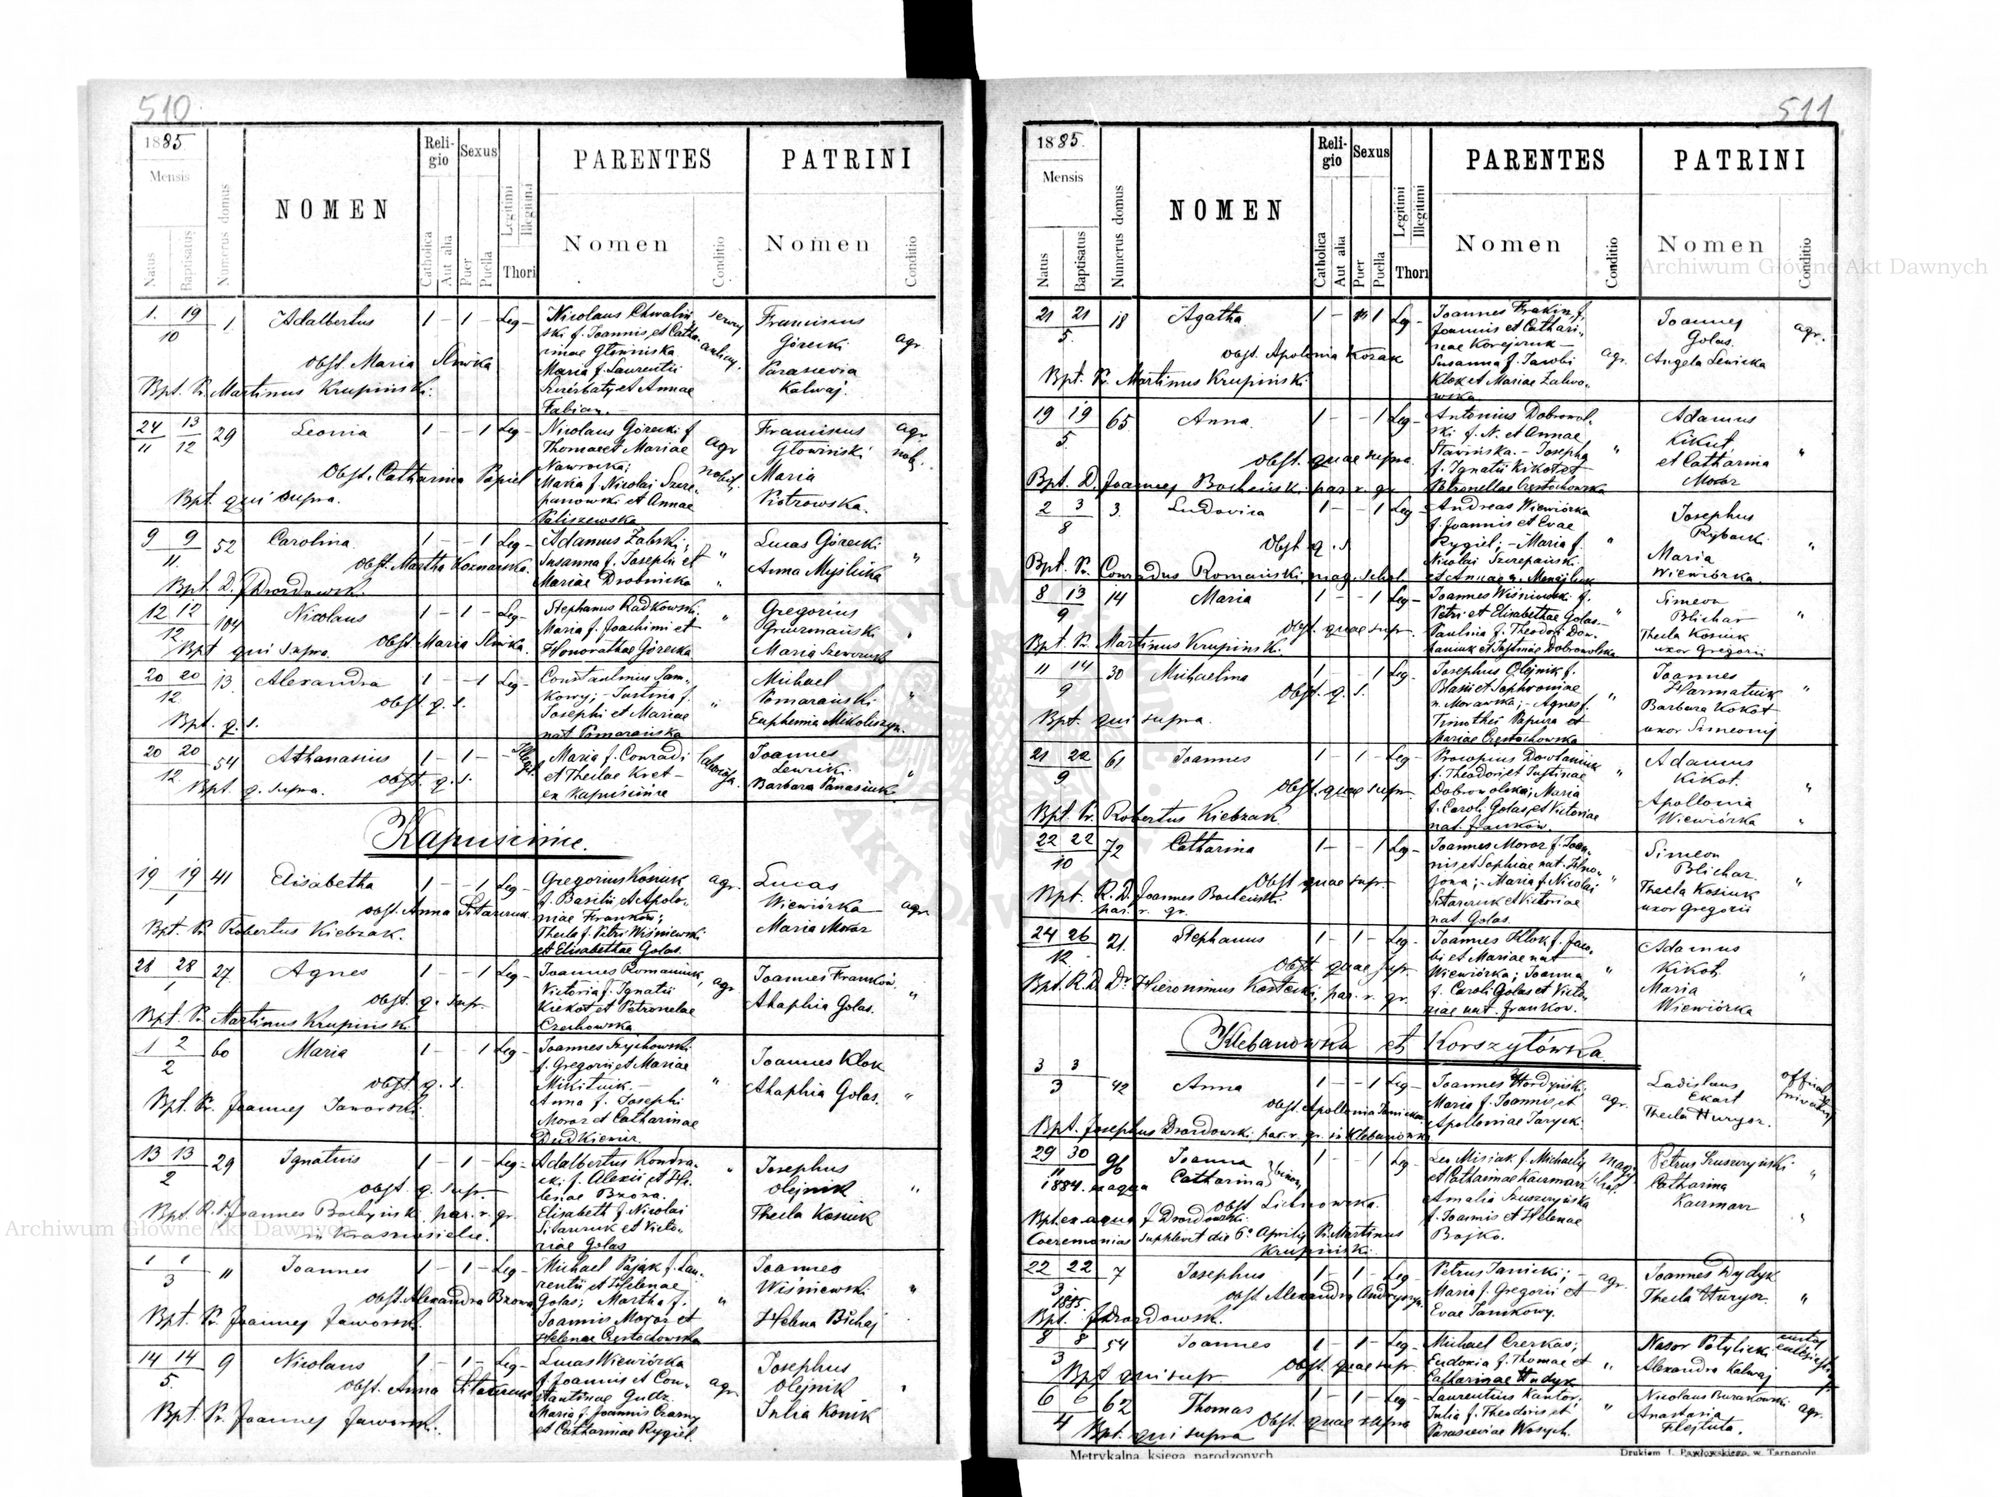 510
1885
Mensis
Natus
Baptisatus
Numerus domus
NOMEN
Reli-
gio
Catholica
Aut alia
Sexus
Puer
Puella
Legitimi
Illegitimi
Thori
PARENTES
Nomen
Conditio
PATRINI
Nomen
Conditio
1. 19
10
1
Adalbertus
1 – 1 – Leg –
Nicolaus Chwaliń
ski f. Joannis et Catha
rinae Głowińska
Maria f. Laurentii
Szczerbaty et Annae
Fabian. –
Franciscus
Górecki
agr.
Parascevia
Kalwaj.
Obst. Maria Śliwka
Bpt. Pr. Martinus Krupiński.
24 13
11 12
29
Leonia
1 – – 1 Leg –
Nicolaus Górecki f.
Thomae et Mariae
Nawrocka;
Maria f. Nicolai Szcze-
panowski et Annae
Paliszewska
agr
nobil.
Franciscus agr
Głowiński nob.
Maria
Piotrowska.
Obst. Catharina Papiel
Bpt. qui supra.
9 9
11
52
Carolina
1 – – 1 Leg –
Adamus Zalski;
Susanna f. Josephi et
Mariae Drobnicka
"
Lucas Górecki
Anna Myśliska
"
Obst. Martha Koznarska.
Bpt. D. J. Drozdowski.
12 12
12
104
Nicolaus
1 – 1 – Leg –
Stephanus Radkowski.
Maria f. Joachimi et
Honorathae Górecka
"
Gregorius
Gruzmański
Maria Szewczuk
"
Obst. Maria Śliwka.
Bpt qui supra.
20 20
12
13
Alexandra
1 – – 1 Leg –
Constantinus Jan-
kowy; Justina f.
Josephi et Mariae
nat. Pomarańska
"
Michael
Pomarański
Euphemia Mikoluszyn.
"
Obst q. s.
Bpt. q. s.
20 20
12
54
Athanasius
1 – 1 – Illegit.
Maria f. Conradi
et Theclae Kret –
ex Kapuścińce
Joannes
Lewicki.
Barbara Panasiuk.
"
Obst. q. s.
Bpt. q. supra.
Kapuścińce.
19 19
1
41
Elisabetha
1 – – 1 Leg –
Gregorius Kosiuk
f. Basilii, et Apolo-
niae Franków;
Thecla f. Petri Wiśniewski
et Elisabethae Golas.
agr.
Lucas
Wiewiórka agr
Maria Moroz
Obst. Anna Sitarczuk.
Bpt. Pr. Robertus Kiebzak.
28 28
1
27
Agnes
1 – – 1 Leg –
Joannes Romaniuk,
Victoria f. Ignatii
Kikot et Petronelae
Czechowska
agr.
Joannes Franków.
Ahaphia Golas.
"
Obst. q. supr.
Bpt. Pr. Martinus Krupiński
1 2
2
60
Maria
1 – – 1 Leg –
Joannes Szychowski
f. Gregorii et Mariae
Mikituik. –
Anna f. Josephi
Moroz et Catharinae
Dudkiewicz.
"
Joannes Klok
Ahaphia Golas.
"
Obst. q. s.
Bpt. Pr. Joannes Jaworski.
13 13
2
29
Ignatius
1 – 1 – Leg –
Adalbertus Kondra-
cki f. Alexii et He-
lenae Brzona.
Elisabeth f. Nicolai
Sitarczuk et Victo-
riae Golas
"
Josephus
Olejnik
Thecla Kosiuk
"
Obst. q. supr.
Bpt. R. D. Joannes Bocheński, par. r. gr.
in Krasnosielce.
1 1
3
"
Joannes
1 – 1 – Leg –
Michael Pająk f. Lau-
rentii et Helenae
Golas; Martha f.
Joannis Moroz et
Helenae Częstochowska
"
Joannes
Wiśniewski
Helena Bichaj
"
Obst. Alexandra Brzona
Bpt. Pr. Joannes Jaworski.
14 14
5.
9
Nicolaus
1 – 1 – Leg –
Lucas Wiewiórka
f. Joannis et Con-
stantinae Gudz
Maria f. Joannis Czarny
et Catharinae Rygiel.
agr
Josephus
Olejnik
Julia Konik
"
Obst. Anna Sitarczuk
Bpt. Pr. Joannes Jaworski.
511
1885.
Mensis
Natus
Baptisatus
Numerus domus
NOMEN
Reli-
gio
Catholica
Aut alia
Sexus
Puer
Puella
Legitimi
Illegitimi
Thori
PARENTES
Nomen
Conditio
PATRINI
Nomen
Conditio
21 21
5.
18
Agatha.
1 – 1 Leg –
Joannes Frakin f.
Joannis et Cathari-
nae Korejczuk –
Susanna f. Jacobi
Klok et Mariae Zalwo-
wska
agr.
Joannes
Golas.
Angela Lewicka
agr.
Obst. Apolonia Kozak
Bpt. Pr. Martinus Krupiński.
19 19
5.
65
Anna.
1 – – 1 Leg –
Antonius Dobrowol-
ski f. N. et Annae
Stawińska. – Josepha
f. Ignatii Kikot et
Petronellae Częstochowska
"
Adamus
Kikot
et Catharina
Moroz
"
Obst. quae supra.
Bpt. D. Joannes Bocheński par. r. gr
2 3
8
3.
Ludovica
1 – – 1 Leg –
Andreas Wiewiórka
f. Joannis et Evae
Rygiel; – Maria f.
Nicolai Szczepański
"
Josephus
Rybacki
Maria
Wiewiórka.
"
Obst q. s.
Bpt. Pr. Conradus Romański, mag. schol.
8 13
9
14
Maria
1 – – 1 Leg –
Joannes Wiśniewski f.
Petri et Elisabethae Golas. –
Paulina f. Theodori Dow-
haniuk et Justinae Dobrowolska
"
Simeon
Blichar
Thecla Kosiuk
uxor Gregorii
"
Obst. quae supr.
Bpt. Pr. Martinus Krupiński.
11 14
9
30
Michaelina
1 – – 1 Leg –
Josephus Olejnik f.
Blasii et Sophroniae
n. Morawska; – Agnes f.
Timothei Papura et
Mariae Częstochowska
"
Joannes
Harmatiuk
Barbara Kokot
uxor Simeonis
"
Obst. q. s.
Bpt. qui supra.
21 22
9
61
Joannes
1 – 1 – Leg –
Procopius Dowhaniuk
f. Theodori et Justinae
Dobrowolska; Maria
f. Caroli Golas, et Victoriae
nat. Franków.
"
Adamus
Kikot.
Apollonia
Wiewiórka
"
Obst. quae supr.
Bpt. Pr. Robertus Kiebzak.
22 22
10
72
Catharina
1 – – 1 Leg –
Joannes Moroz f. Joan-
nis et Sophiae nat. Hno-
jona; – Maria f. Nicolai
Sitarczuk et Victoriae
nat. Golas.
"
Simeon
Blichar.
Thecla Kosiuk
uxor Gregorii
"
Obst quae supr.
Bpt. R. D. Joannes Bocheński
par. r. gr.
24 26
12
21.
Stephanus
1 – 1 – Leg –
Joannes Klok f. Jaco-
bi et Mariae nat
Wiewiórka; Joanna
f. Caroli Golas et Victo-
riae nat. Frankow.
"
Adamus
Kikot.
Maria
Wiewiórka
"
Obst. quae supr
Bpt. R. D. Dr. Hieronimus Kostecki, par. r. gr.
Klebanówka et Korszyłówka.
3 3
3
42
Anna
1 – – 1 Leg –
Joannes Hordyński;
Maria f. Joannis, et
Apolloniae Jaryck.
agr.
Ladislaus
Ekart
Thecla Huryor.
Obst. Apollonia Janicka
Bpt. Josephus Drozdowski, par. r. gr. in Klebanówka
29 30
11
1884. ex aqua
96
Joanna
Catharina } binom.
1 – – 1 Leg –
Leo Misiak f. Michaelis
et Catharinae Kaczmarz
Amalia Szuszczyńska
f. Joannis et Helenae
Bojko.
Petrus Szuszczyński "
Catharina
Kaczmarz
"
Obst Lichnowska.
Bpt. ex aqua J. Drozdowski.
Caeremonias supplevit die 6ª Aprilis Pr. Martinus
Krupiński.
22 22
3
1885.
7
Josephus
1 – 1 – Leg –
Petrus Janicki; –
Maria f. Gregorii et
Evae Jankowy.
agr.
Joannes Dydyk
Thecla Huryor.
"
Obst Alexandra Andryszyn.
Bpt. J. Drozdowski.
8 8
3
54
Joannes
1 – 1 – Leg –
Michael Czerkas;
Eudoxia f. Thomae et
Catharinae Hudyk
"
Nasor Potylicki
Alexandra Kalwaj
Obst. quae supr
Bpt qui supr.
6 6
4
62
Thomas
1 – 1 – Leg –
Laurentius Kantor.
Julia f. Theodoris et
Parasceviae Wosych.
"
Nicolaus Burakowski.
Anastasia
Flejtuta.
agr.
Obst. quae supra
Bpt. qui supra
Metrykalna księga narodzonych
Drukiem J. Pawłowskiego, w Tarnopolu
Archiwum Główne Akt Dawnych
Archiwum Główne Akt Dawnych